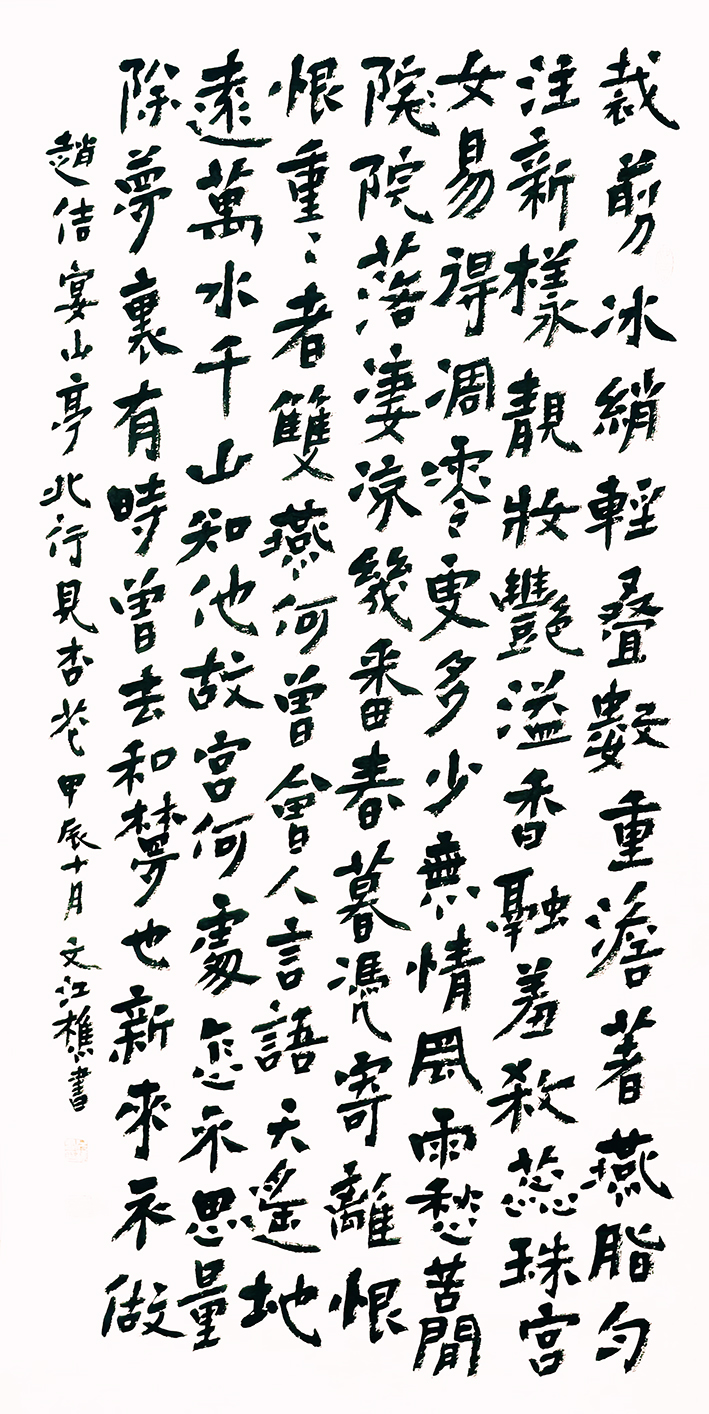 裁剪冰綃輕叠數重澹著燕脂勻
注新樣靚妝艷溢香融羞殺蕊珠宮
女易得凋零更多少無情風雨愁苦閒
院院落淒涼幾番春暮憑寄離恨
恨重〻者雙燕何曾會人言語天遙地
遠萬水千山知他故宮何處怎不思量
除夢裏有時曾去和夢也新來不做
趙佶宴山亭北行見杏花甲辰十月文江樵書